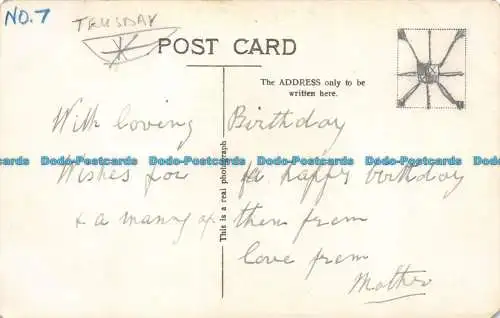 NO. 7
TRUSDAY
POST CARD
The ADDRESS only to be
written here.
This is a real photograph
With loving Birthday
Dodo-Postcards Dodo-Postcards Dodo-Postcards Dodo-Postcards
Wishes for a happy birthday
& a many of them from
love from
Mother